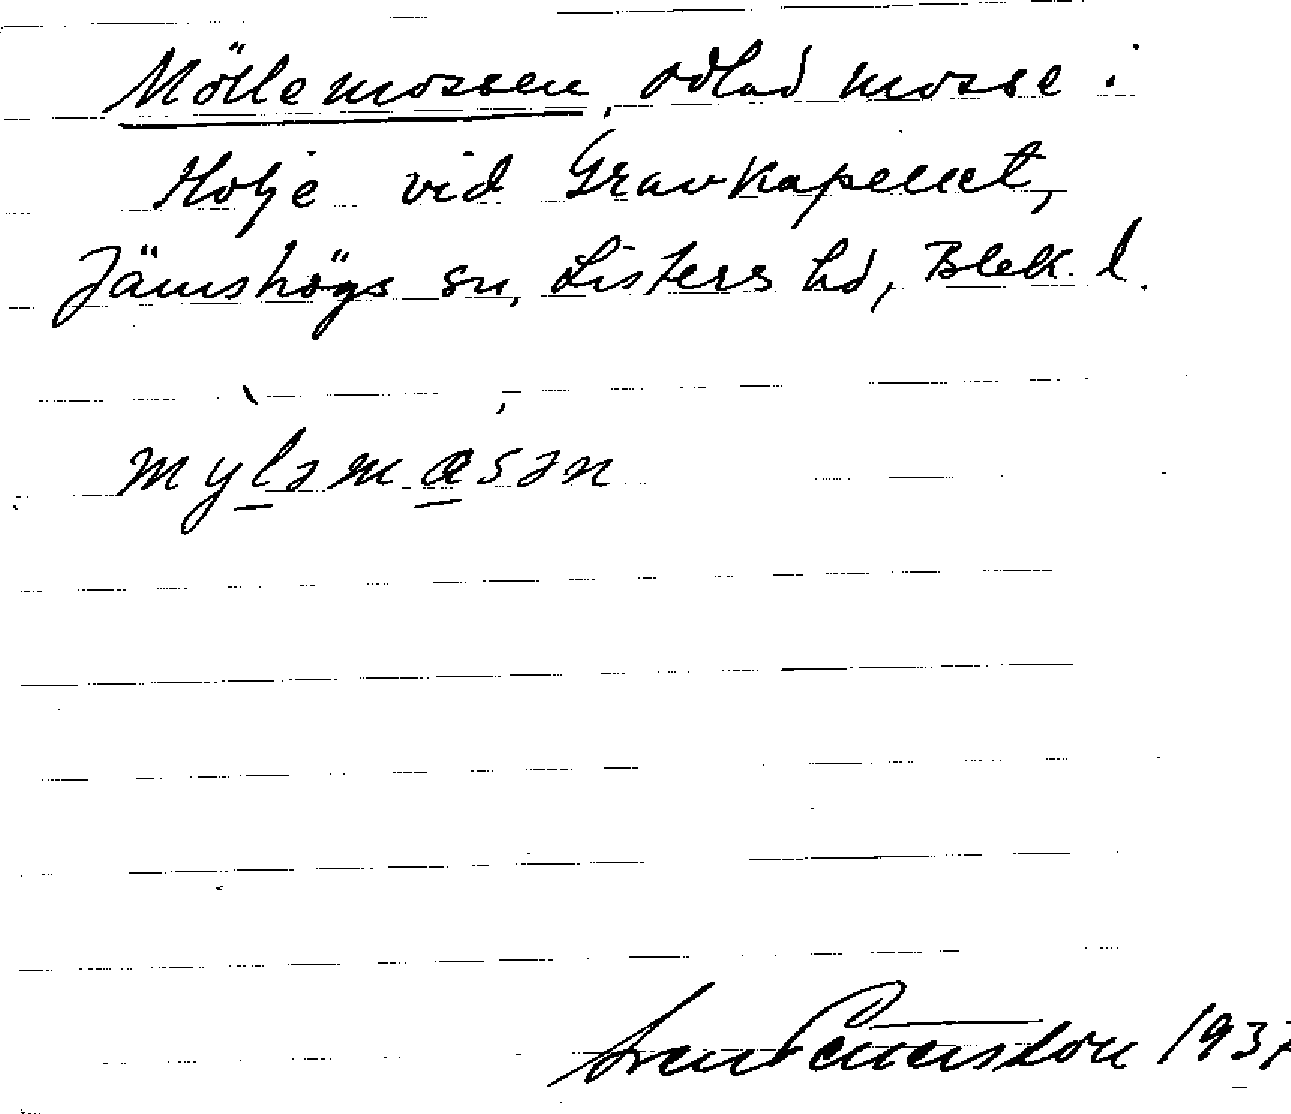 Möllemossen, odlad mosse i
Holje vid Gravkapellet,
Jämshögs sn, Listers hd, Blek. l.
myləmæsən
Sven Petersson 193